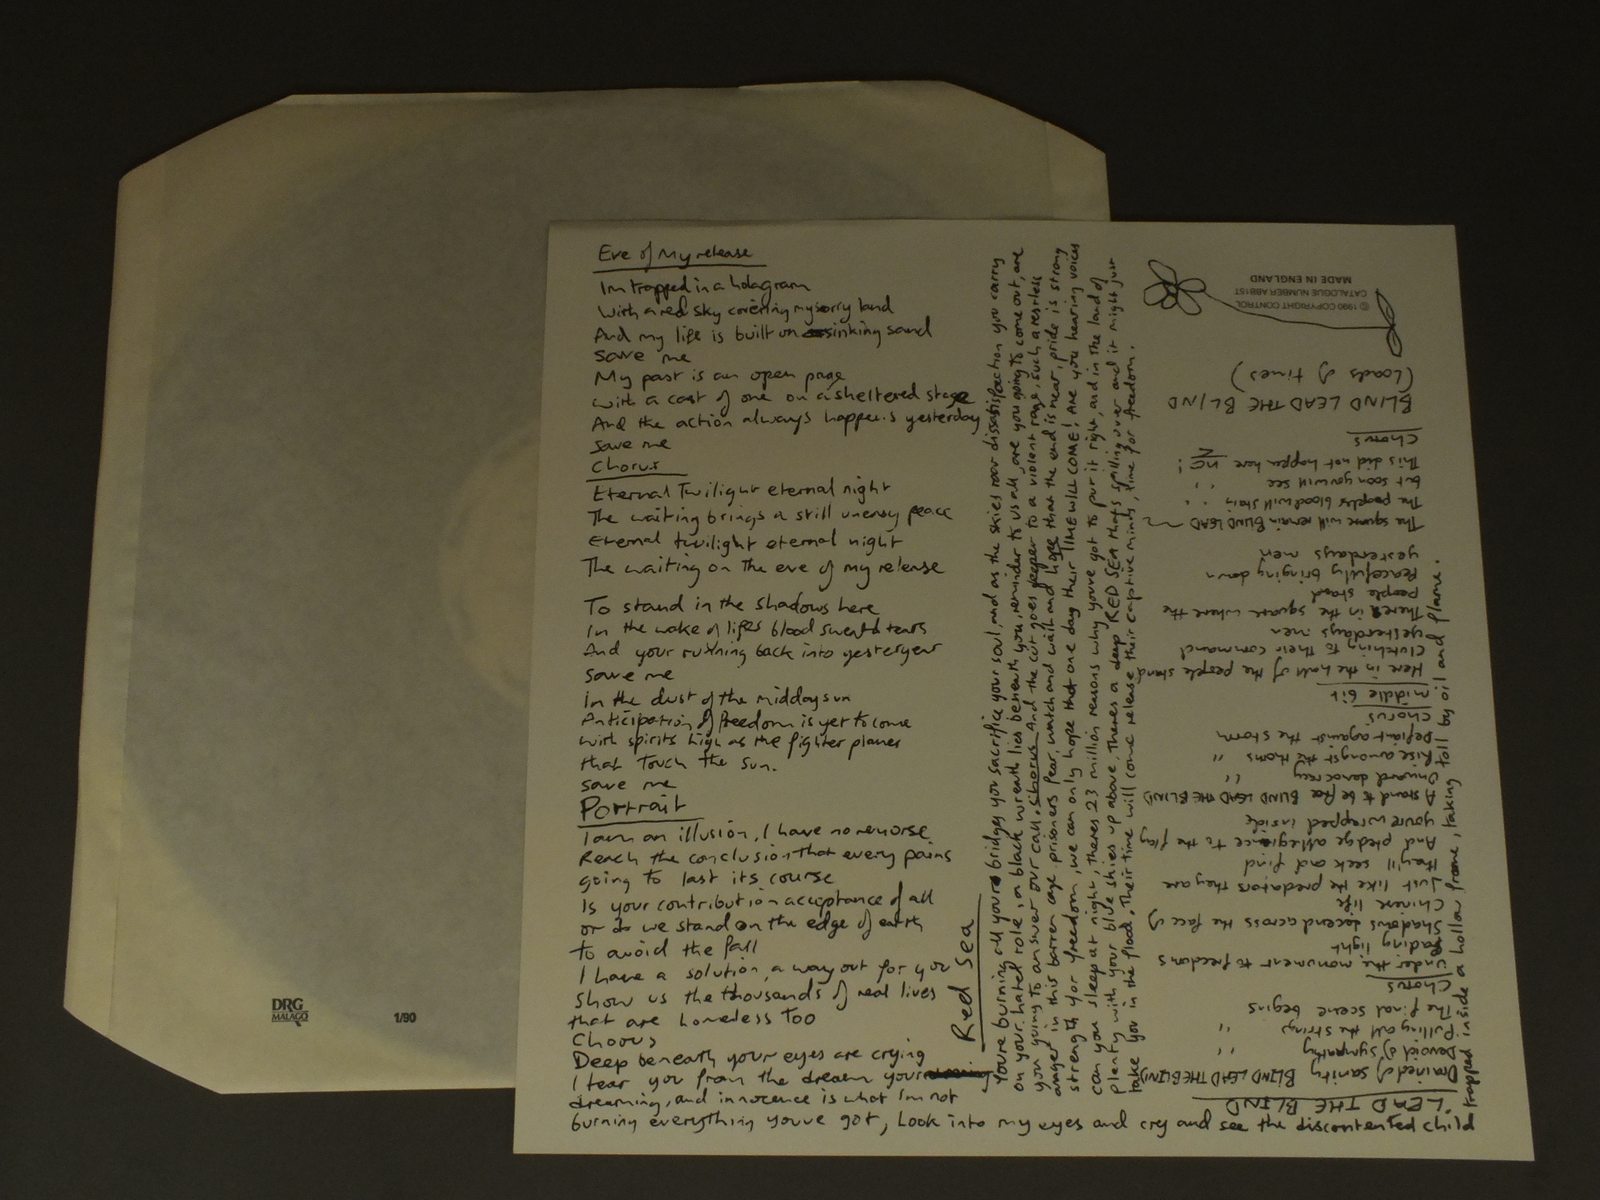 Eve of My release
Im trapped in a hologram
With a red sky covering my sorry land
And my life is built on sinking sand
save me
My past is an open page
with a cast of one on a sheltered stage
And the action always happens yesterday
save me
Chorus
Eternal Twilight eternal night
The waiting brings a still uneasy peace
Eternal twilight eternal night
The waiting on the eve of my release
To stand in the shadows here
In the wake of lifes blood sweat & tears
And your running back into yesteryear
save me
In the dust of the midday sun
Anticipation of freedom is yet to come
with spirits high as the fighter planes
that touch the sun.
save me
Portrait
I am an illusion, I have no remorse
Reach the conclusion that every pains
going to last its course
Is your contribution acceptance of all
or do we stand on the edge of earth
to avoid the fall
I have a solution, a way out for you
Show us the thousands of real lives
that are homeless too
Chorus
Deep beneath your eyes are crying
I tear you from the dream your
dreaming, and innocence is what I'm not
burning everything youve got, Look into my eyes and cry and see the discontented child
trapped inside a hollow frame, taking toll by oil and flame.
Red Sea
Youre burning all your bridges you sacrifice your soul, and as the skies roar dissatisfaction you carry
on your hated role, a black wreath lies beneath you, reminder to us all, are you going to come out, are
you going to answer our call. chorus And the cut goes deeper to a violent rage, such a restless
anger in this barren cage prisoners fear, watch and wait and hope that the end is near, pride is strong
strength for freedom, we can only hope that one day their TIME WILL COME! Are you hearing voices
can you sleep at night, theres 23 million reasons why youve got to put it right, and in the land of
plenty with your blue skies up above, Theres a deep RED SEA thats spilling over and it might just
take you in the flood, Their time will come release their captive minds, time for freedom.
"LEAD THE BLIND
Drained of sanity BLIND LEAD THE BLIND
Devoid of sympathy "
Pulling all the strings "
The final scene begins
Chorus
Under the monument to freedoms
fading light
Shadows descend across the face of
Chinese life
Just like the predators they are
they'll seek and find
And pledge allegiance to the flag
youre wrapped inside
A stand to be free BLIND LEAD THE BLIND
Onward democracy "
Rise amongst the thorns "
Defiant against the storm
chorus
middle bit
Here in the hall of the people stand
Clutching to their command
yesterdays men
There in the square where the
people stand
Peacefully bringing down
yesterdays men
The square will remain BLIND LEAD
The peoples blood will stain "
but soon you will see "
This did not happen here NO!
Chorus
BLIND LEAD THE BLIND
(Loads of times)
© 1990 COPYRIGHT CONTROL
CATALOGUE NUMBER ABB15T
MADE IN ENGLAND
DRG
MALAGO
1/90